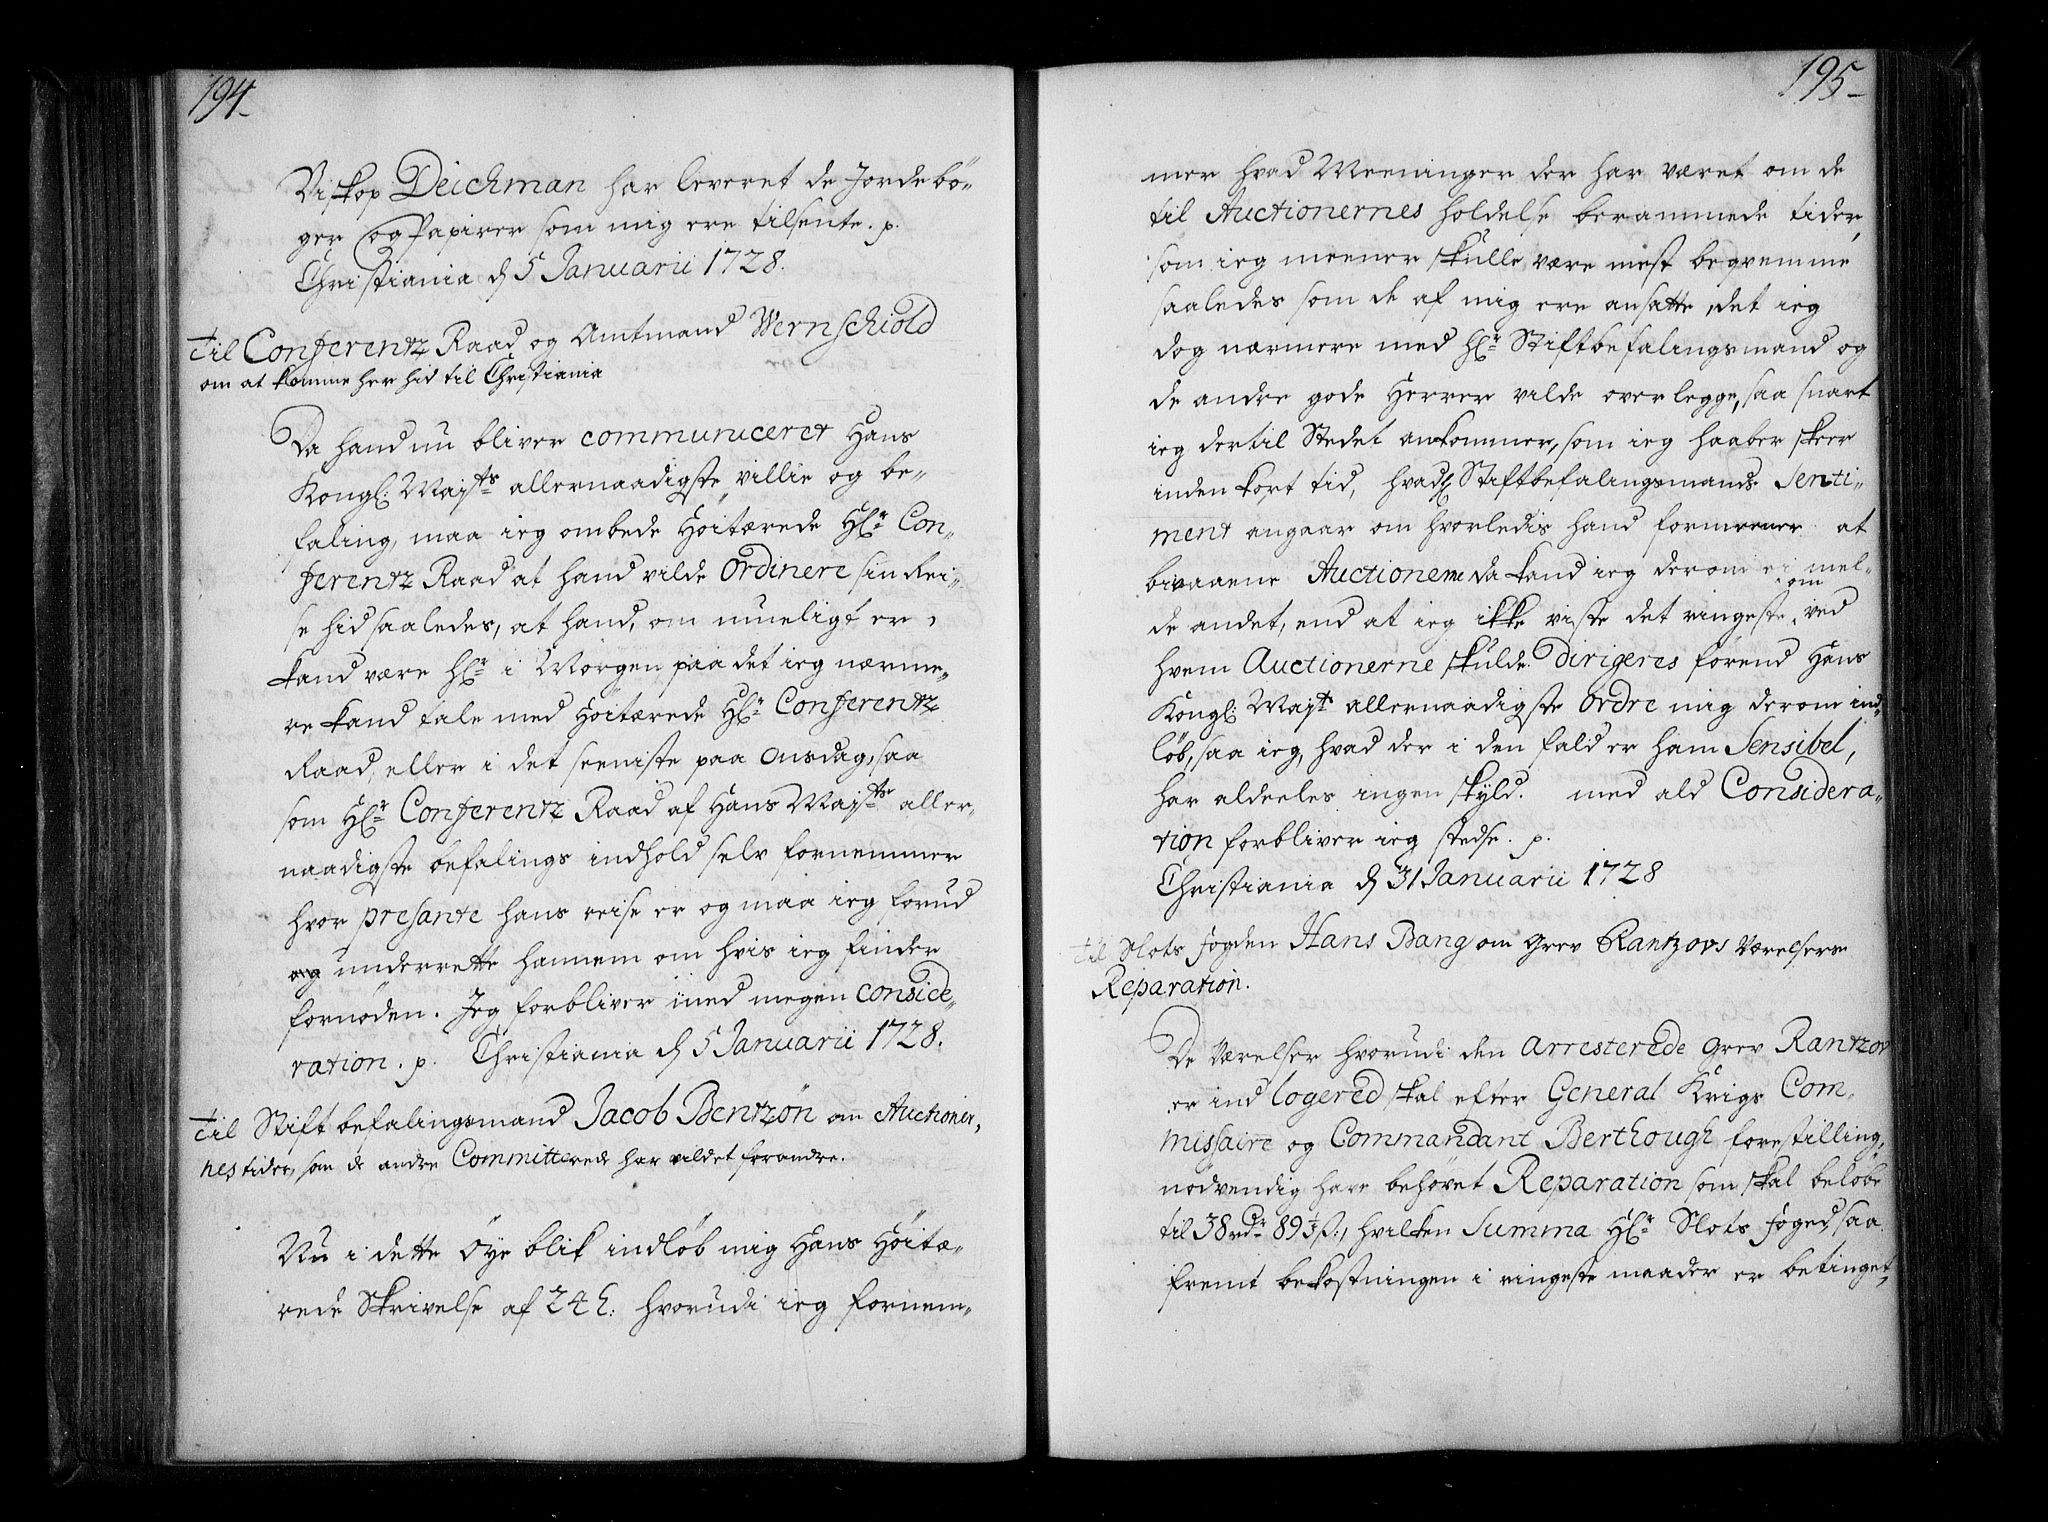 194
Biskop Deichman har leveret de Jordebö-
ger og Papirer som mig ere tilsente. p.
Christiania d 5 Januarii 1728.
til Conferentz Raad og Amtmand Wernschiold
om at komme her hid til Christiania
Da hand nu bliver communiceret Hans
Kongl: Mayts allernaadigste villie og be-
faling, maa ieg ombede Høitærede Hr Con-
ferentz Raad at hand vilde Ordinere sin Rei-
se hid saaledes, at hand, om mueligt er,
kand være her i Morgen paa det ieg nærme-
re kand tale med Høitærede Hr Conferentz
Raad, eller i det seeniste paa Onsdag, saa
som Hr Conferentz Raad af Hans Mayts aller-
naadigste befalings indhold selv fornemmer
hvor presante hans reise er og maa ieg forud
og underrette hannem om hvis ieg finder
fornøden. Jeg forbliver med megen conside-
ration. p. Christiania d 5 Januarii 1728.
til Stiftbefalingsmand Jacob Bentzøn om Auctioner-
nes tider, som de andre Committerede har vildet forandre.
Nu i dette Öyeblik indlöb mig Hans Höitæ-
rede Skrivelse af 24 h: hvorudi ieg fornem-
195
mer hvad Meeninger der har været om de
til Auctionernes holdelse berammede tider,
som ieg meener skulle være mest beqvemme
saaledes som de af mig ere ansatte, det ieg
dog nærmere med Hr Stiftbefalingsmand og
de andre gode Herrer vilde overlegge, saa snart
ieg dertil Stedet ankommer, som ieg haaber skeer
inden kort tid, hvad Stiftbefalingsmands Senti-
ment angaar om hvorledis hand formeener at
bivaaene Auctionerne da kand ieg derom ei mel-
de andet, end at ieg ikke viste det ringeste om ved
hvem Auctionerne skulde dirigeres førend Hans
Kongl: Mayts allernaadigste Ordre mig derom ind-
löb, saa ieg, hvad der i den fald er ham Sensibel,
har aldeeles ingen skyld. med ald Considera-
tion forbliver ieg stedse. p.
Christiania d 31 Januarii 1728
til Slots Fogden Hans Bang om Grev Rantzovs Værelsers
Reparation.
De Værelser hvorudi den Arresterede Grev Rantzov
er ind logered skal efter General Krigs Com-
missaire og Commandant Berthough forestilling,
nödvendig have behövet Reparation som skal belöbe
til 38 rdr 89 1/3 s:, hvilken Summa Hr Slots Foged, saa
fremt bekostningen i ringeste maader er betinget,